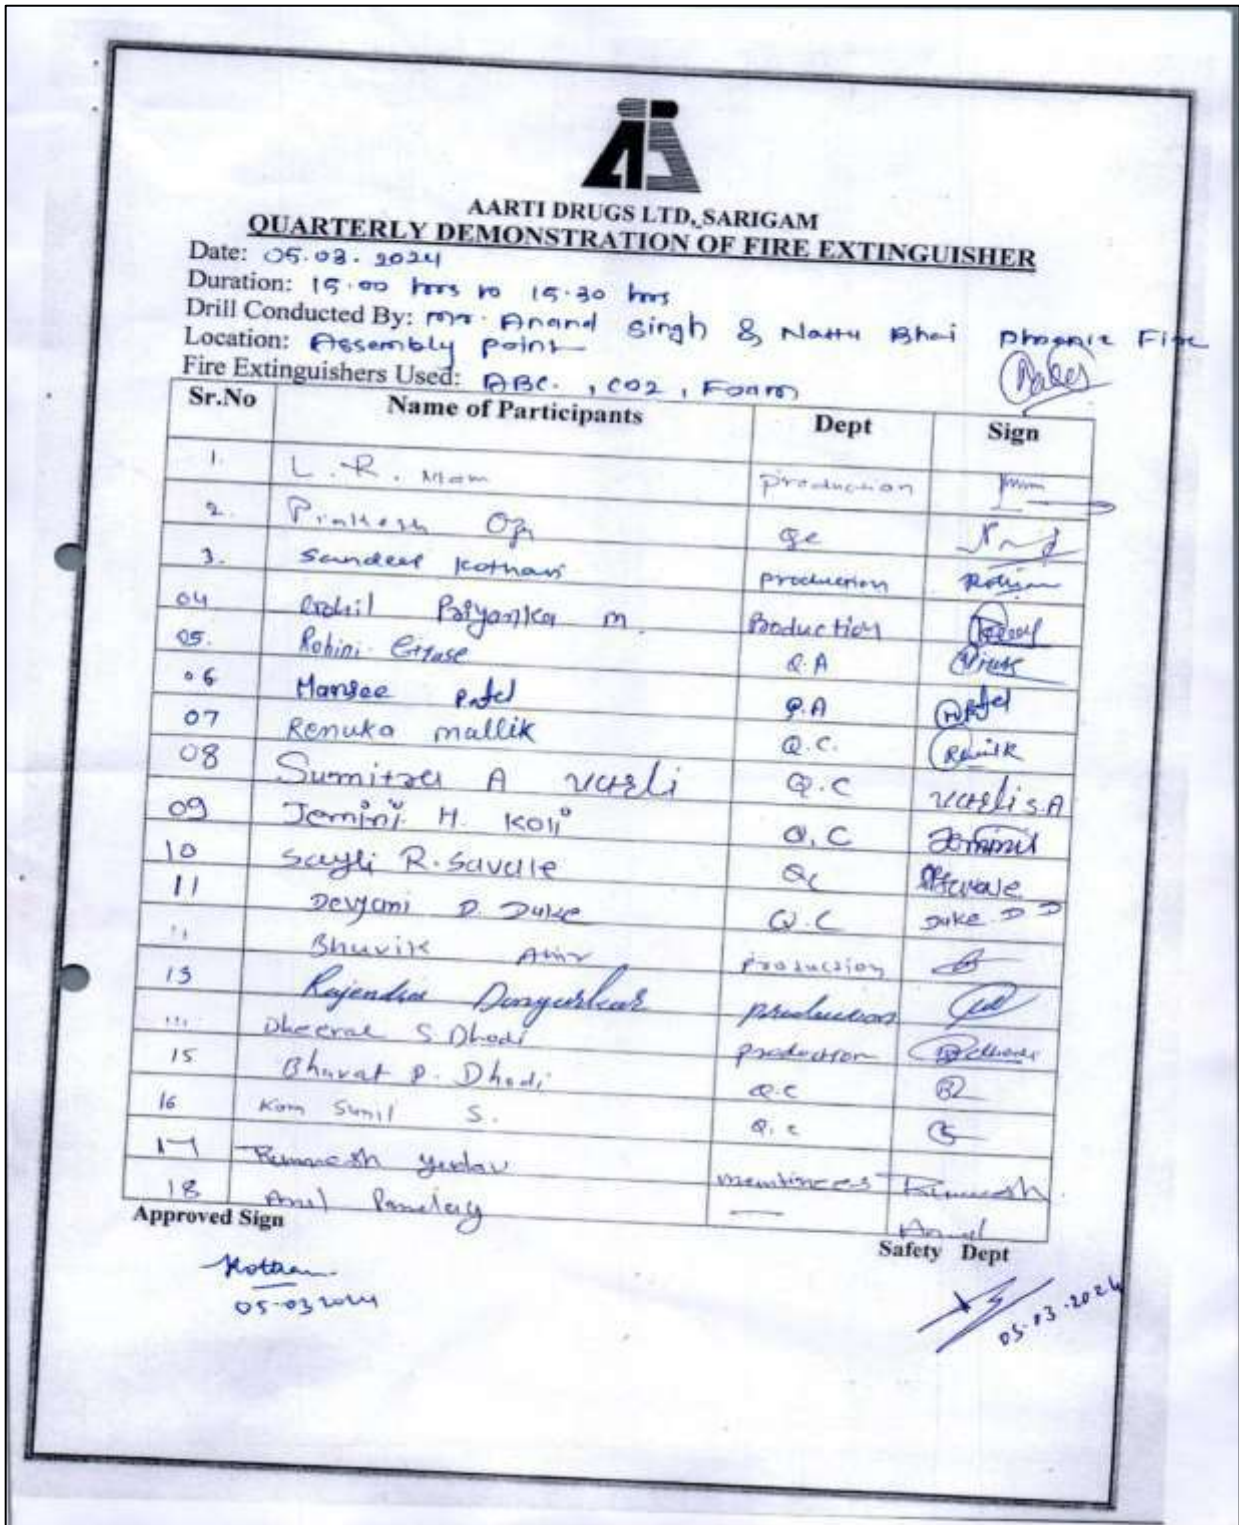 AARTI DRUGS LTD, SARIGAM
QUARTERLY DEMONSTRATION OF FIRE EXTINGUISHER
Date: 05.03.2024
Duration: 15.00 hrs to 15.30 hrs
Drill Conducted By: mr. Anand Singh & Nattu Bhai Phoenix Fire
Location: Assembly point
Fire Extinguishers Used: ABC. , CO2 , Foam
Sr.No Name of Participants Dept Sign
1. L. R. production
2. Oza Qc
3. Sandeep Kothari production
04 Priyanka m. Production
05. Rohini Girase Q.A
06 Mansee Patel Q.A Patel
07 Renuka mallik Q.C.
08 Sumitra A varli Q.C varli S.A
09 Jemini H. Koli Q.C
10 Sayli R. Savale Qc
11 Devyani D. Duke Q.C Duke D D
Bhavik production
13 Rajendra production
Dheeraj S Dhodi production
15 Bharat P. Dhodi Q.C
16 Kom Sunil S. Q.c
17 yadav
18 Pandey —
Approved Sign
Safety Dept
05-03 2024
05.03.2024